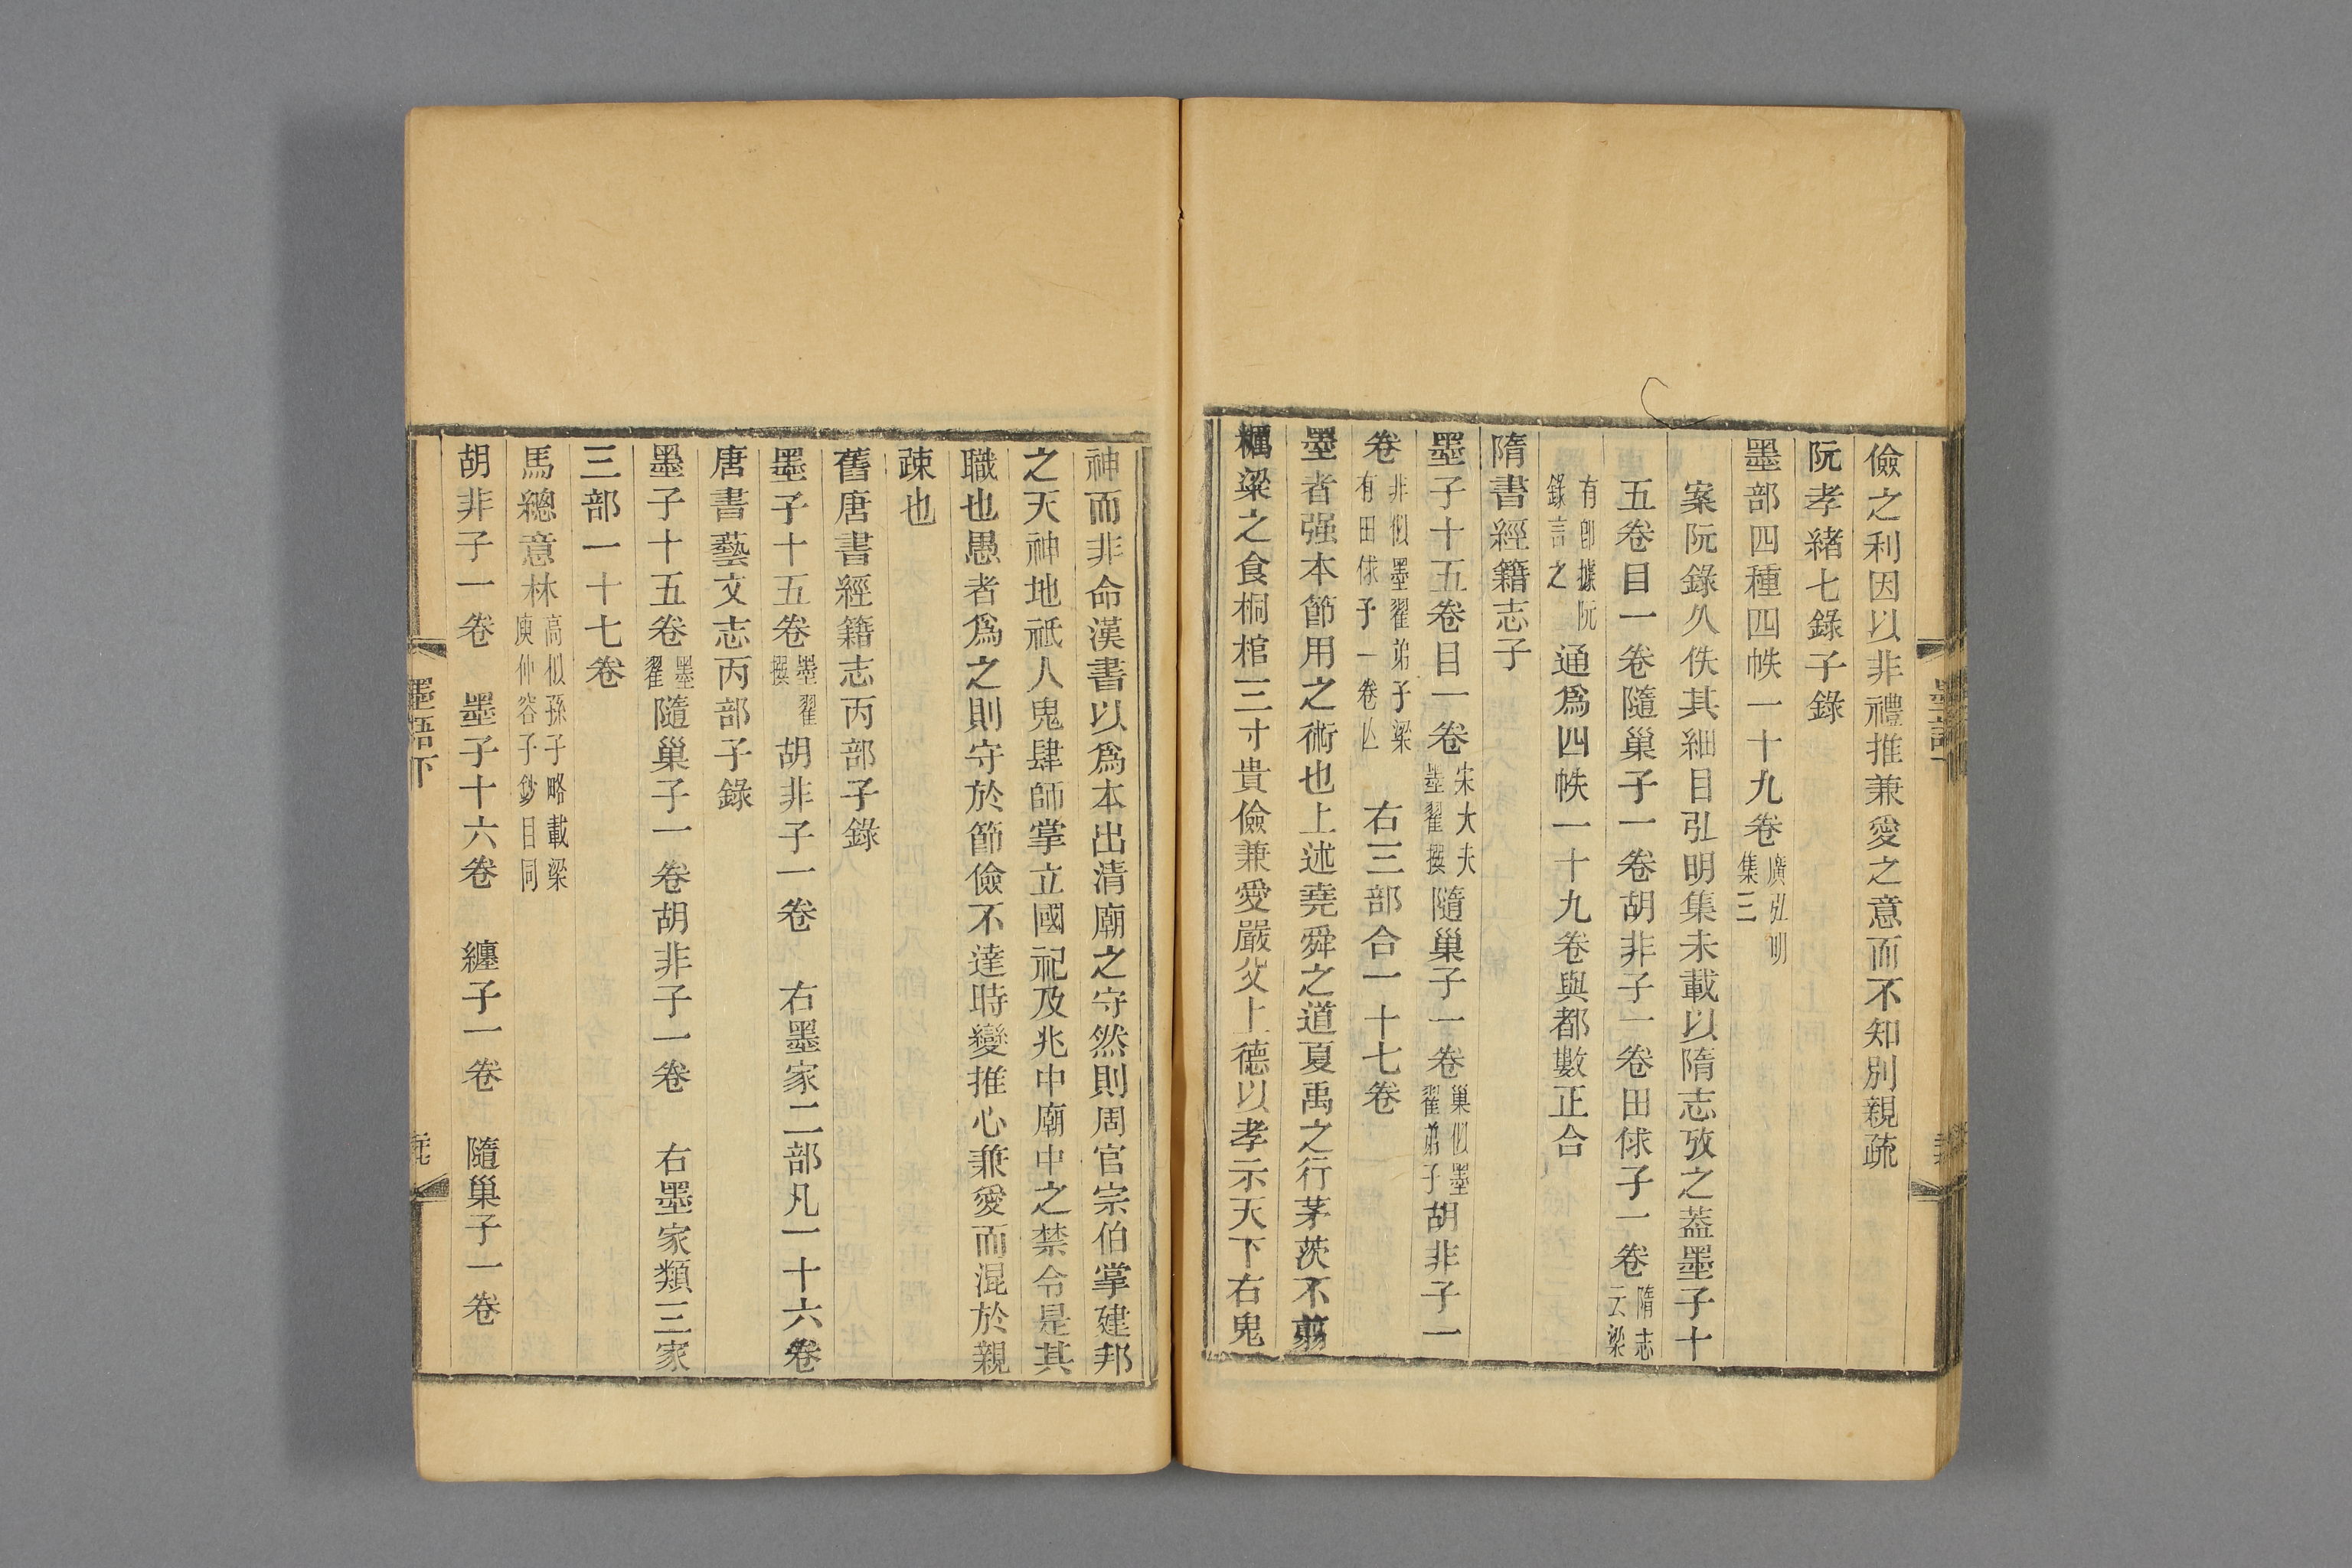 儉之利因以非禮推兼愛之意而不知別親疏
阮孝緒七錄子錄
墨部四種四帙一十九卷廣弘明集三
案阮錄久佚其細目弘明集未載以隋志攷之蓋墨子十
五卷目一卷隨巢子一卷胡非子一卷田俅子一卷隋志云梁
有卽據阮錄言之通爲四帙一十九卷與都數正合
隋書經籍志子
墨子十五卷目一卷宋大夫墨翟撰隨巢子一卷巢似墨翟弟子胡非子一
卷非似墨翟弟子梁有田俅子一卷亾 右三部合一十七卷
墨者强本節用之術也上述堯舜之道夏禹之行茅茨不翦
糲粱之食桐棺三寸貴儉兼愛嚴父上德以孝示天下右鬼
神而非命漢書以爲本出清廟之守然則周官宗伯掌建邦
之天神地祇人鬼肆師掌立國祀及兆中廟中之禁令是其
職也愚者爲之則守於節儉不達時變推心兼愛而混於親
疎也
舊唐書經籍志丙部子錄
墨子十五卷墨翟撰 胡非子一卷 右墨家二部凡一十六卷
唐書藝文志丙部子錄
墨子十五卷墨翟隨巢子一卷胡非子一卷 右墨家類三家
三部一十七卷
馬總意林高似孫子略載梁庾仲容子鈔目同
胡非子一卷 墨子十六卷 纏子一卷 隨巢子一卷
墨語下